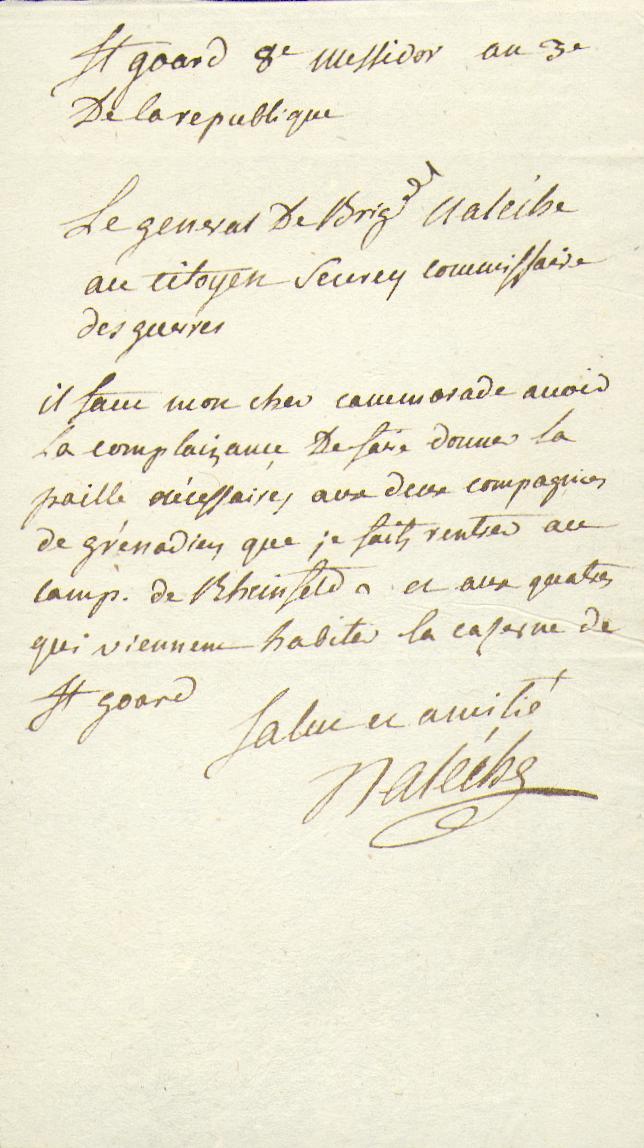 St goard 8e messidor an 3e
De la republique
Le general De Brigde Naléche
au citoyen commissaire
des guerres
il faut mon cher cammorade avoir
la complaizance De faire donner la
paille nécessaires aux deux compagnies
de grénadiers que je faits rentrer au
camp. de Rheinfeld et aux quatres
qui viennent habiter la caserne de
St goard
salut et amitié
Naléche